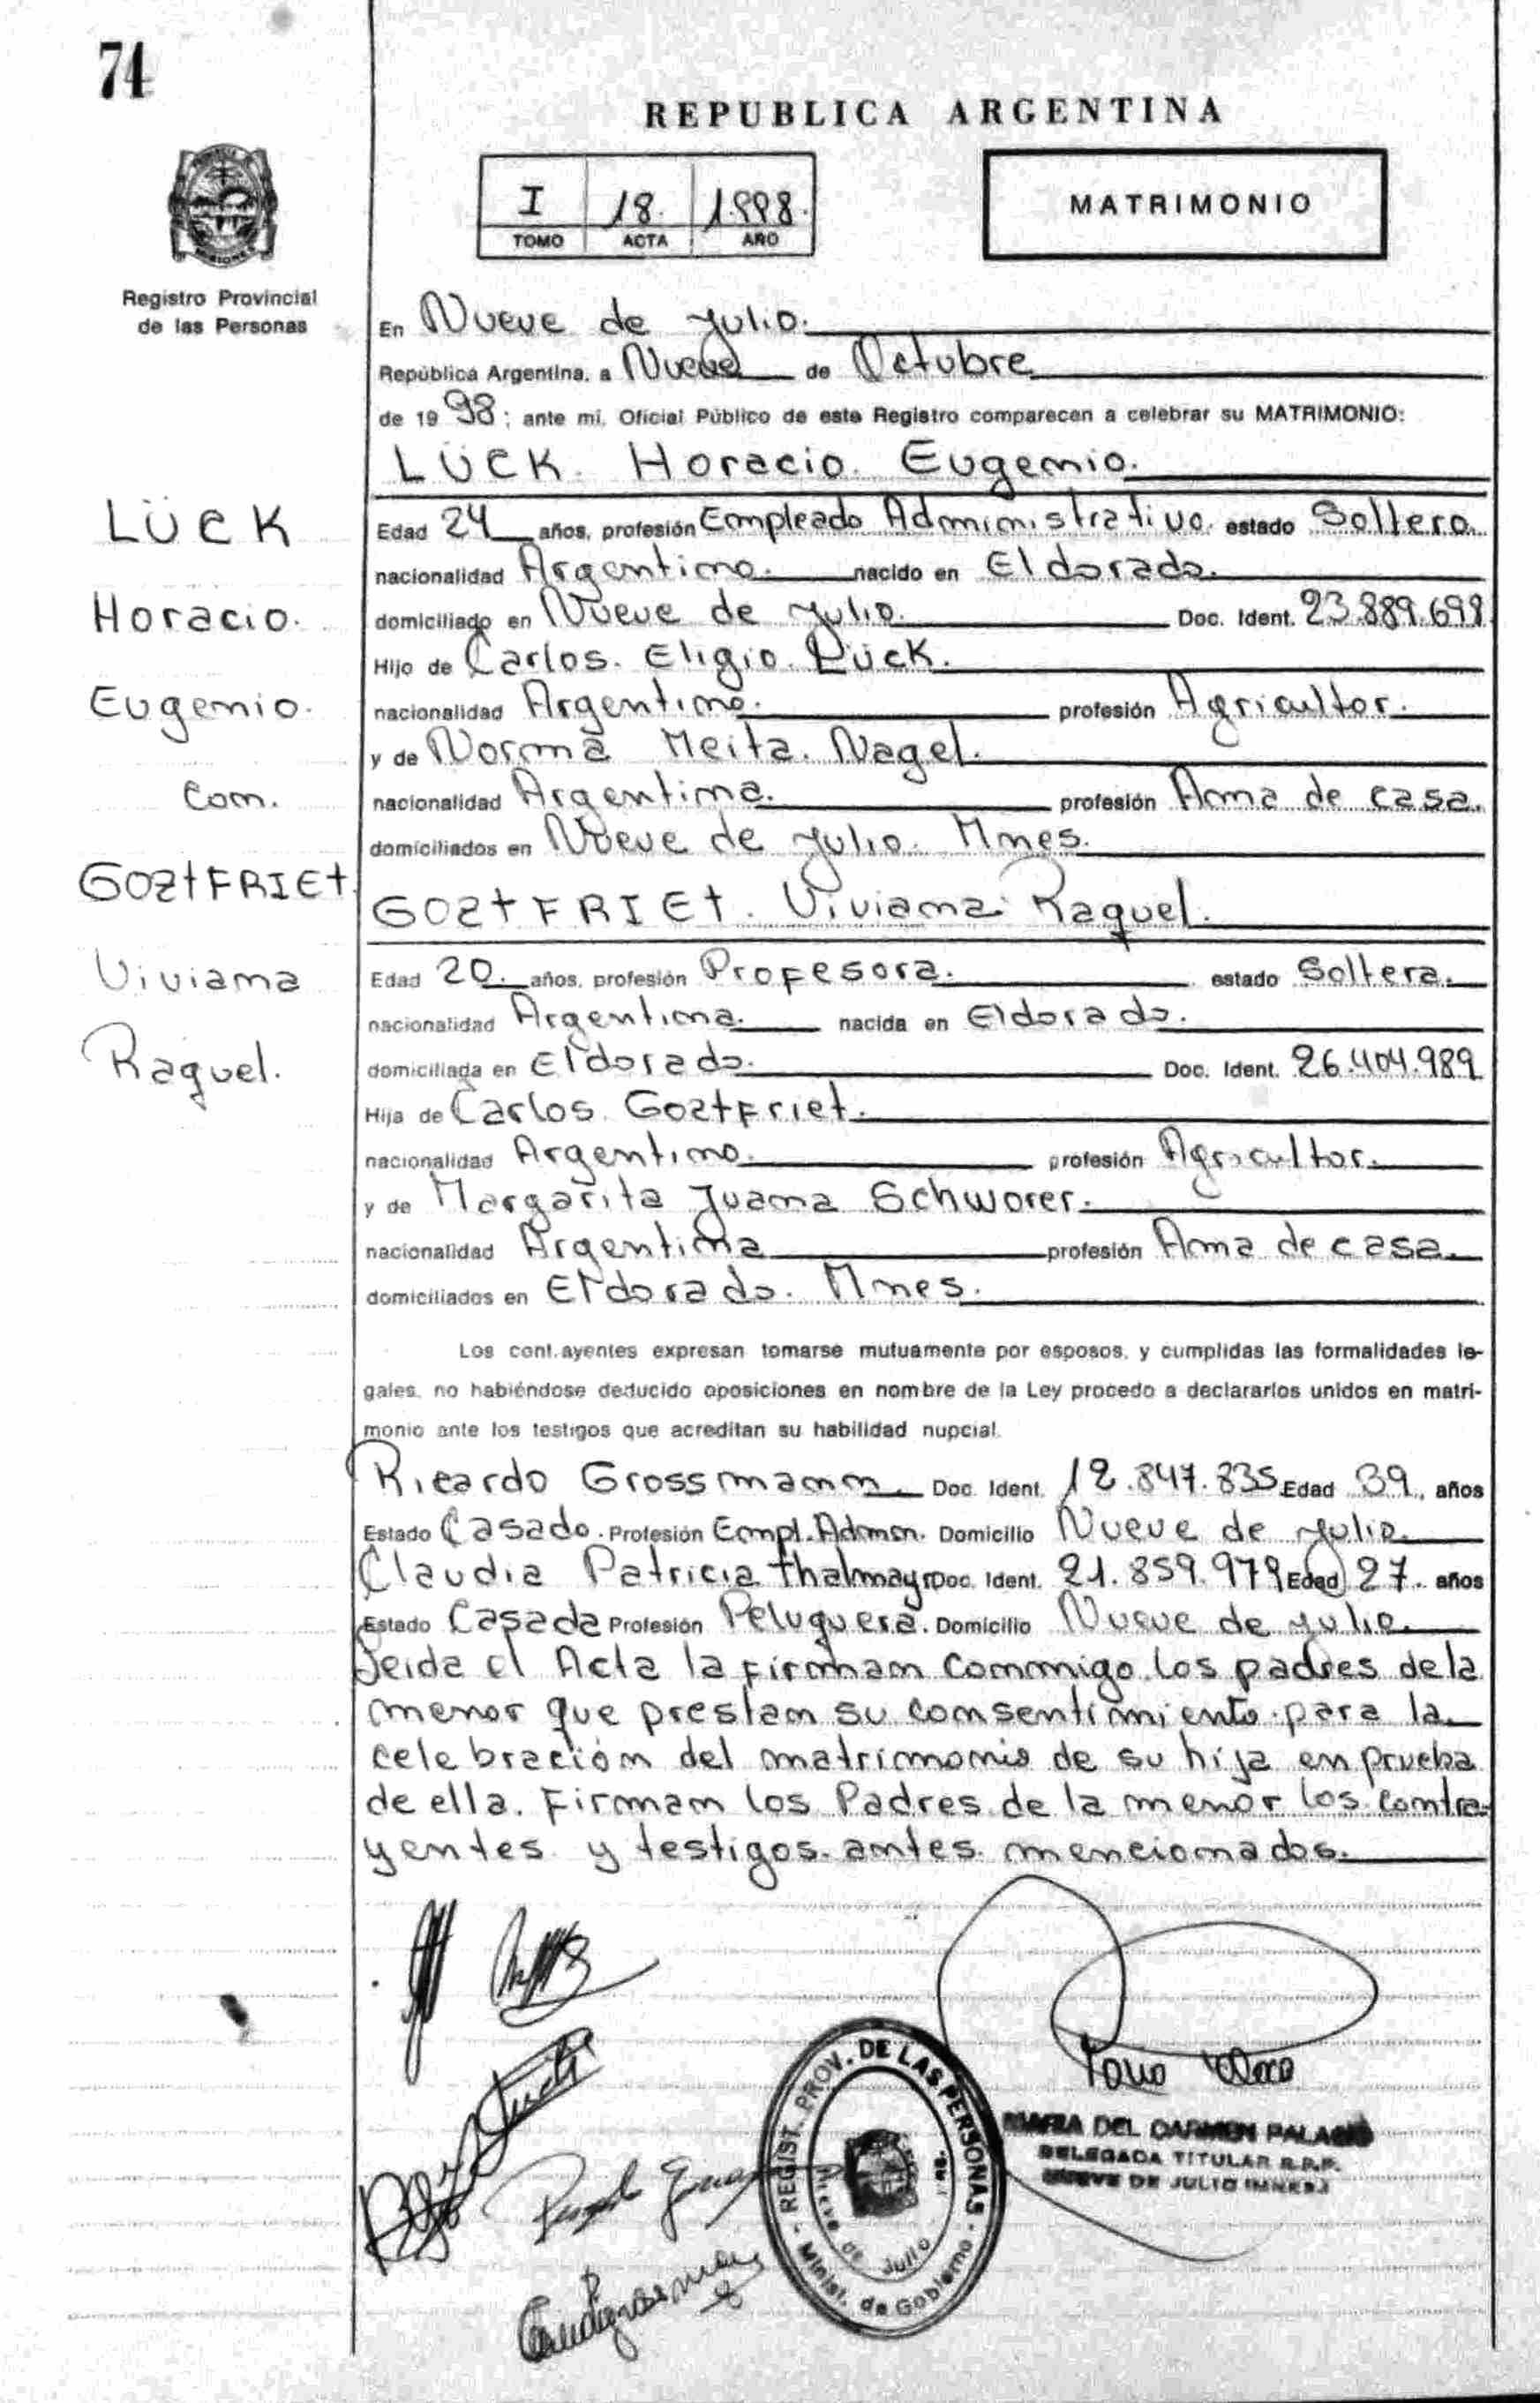 74
REPUBLICA ARGENTINA
I 18. 1.998.
TOMO ACTA AÑO
MATRIMONIO
Registro Provincial
de las Personas
En Nueve de Julio.
República Argentina, a Nueve de Octubre
de 19 98; ante mi, Oficial Público de este Registro comparecen a celebrar su MATRIMONIO:
LÜCK. Horacio. Eugenio.
LÜCK
Horacio.
Eugenio.
Con.
GOZtFRIEt.
Viviana
Raquel.
Edad 24 años, profesión Empleado Administrativo. estado Soltero.
nacionalidad Argentino. nacido en Eldorado.
domiciliado en Nueve de Julio. Doc. Ident. 23.889.698
Hijo de Carlos. Eligio. Lück.
nacionalidad Argentino. profesión Agricultor.
y de Norma Meita. Nagel.
nacionalidad Argentina. profesión Ama de casa.
domiciliados en Nueve de Julio. Mnes.
GOZtFRIEt. Viviana Raquel.
Edad 20. años, profesión Profesora. estado Soltera.
nacionalidad Argentina. nacida en Eldorado.
domiciliada en Eldorado. Doc. Ident. 26.404.989
Hija de Carlos. Goztfriet.
nacionalidad Argentino. profesión Agricultor.
y de Margarita Juana Schworer.
nacionalidad Argentina profesión Ama de casa.
domiciliados en Eldorado. Mnes.
Los cont.ayentes expresan tomarse mutuamente por esposos, y cumplidas las formalidades le-
gales, no habiéndose deducido oposiciones en nombre de la Ley procedo a declararlos unidos en matri-
monio ante los testigos que acreditan su habilidad nupcial.
Ricardo Grossmann. Doc. Ident. 12.847.835 Edad 39. años
Estado Casado. Profesión Empl. Admn. Domicilio Nueve de Julio.
Claudia Patricia thalmayr Doc. Ident. 21.859.979 Edad 27. años
Estado Casada Profesión Peluquera. Domicilio Nueve de Julio.
Leida el Acta la firman conmigo los padres de la
menor que prestan su consentimiento para la
celebración del matrimonio de su hija en prueba
de ella. Firman los Padres de la menor los contra-
yentes y testigos antes mencionados.
REGIST. PROV. DE LAS PERSONAS
Nueve de Julio
Minist. de Gobierno
MARIA DEL CARMEN PALACIO
DELEGADA TITULAR R.P.P.
NUEVE DE JULIO (MNES.)